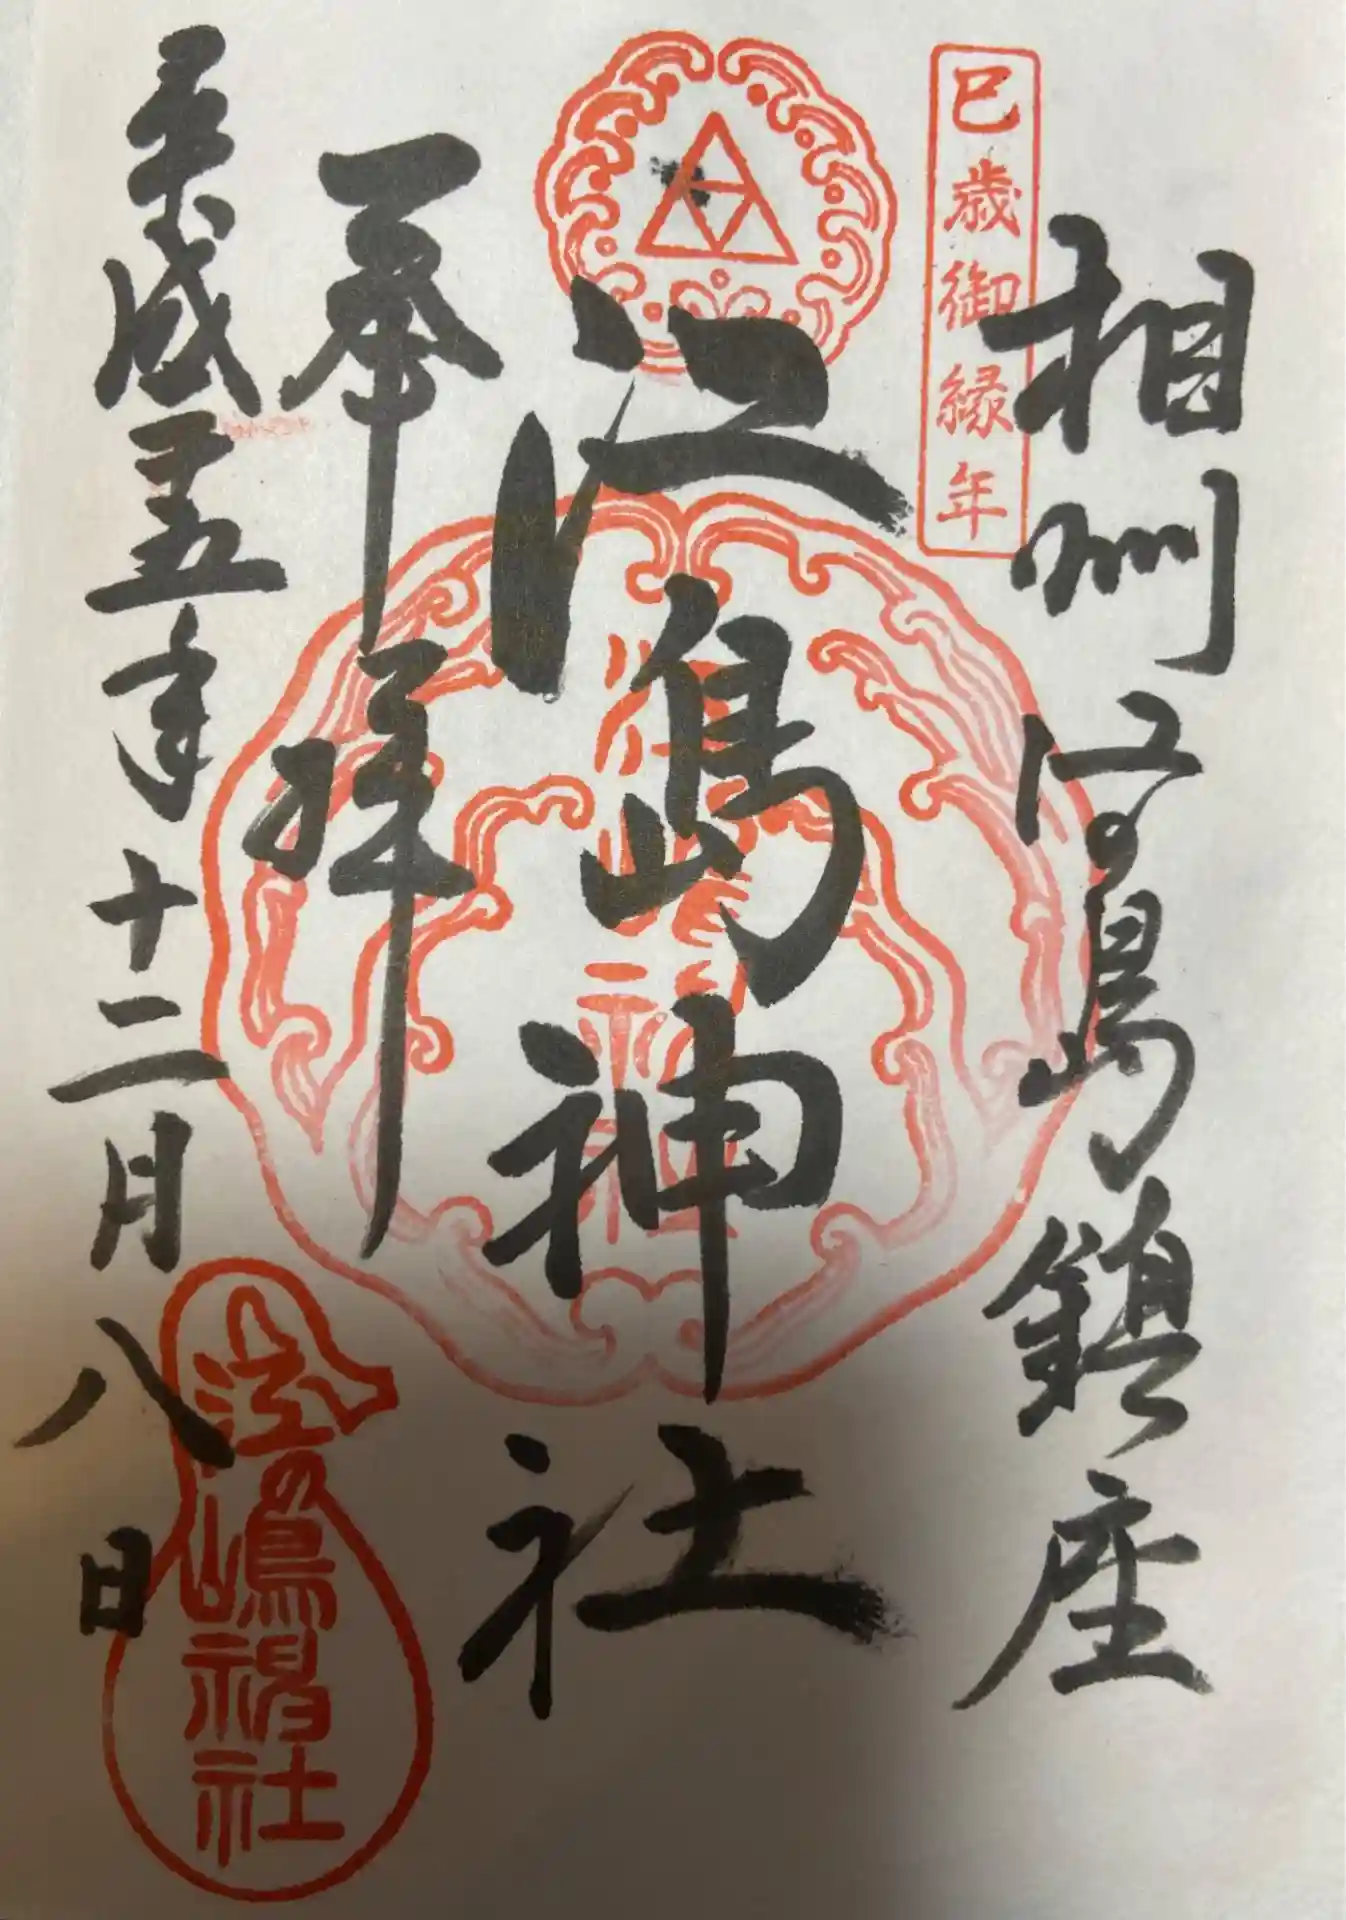 巳歳御縁年
相州江の島鎮座
江島神社
奉拝
平成廿五年十二月八日
江の嶋神社